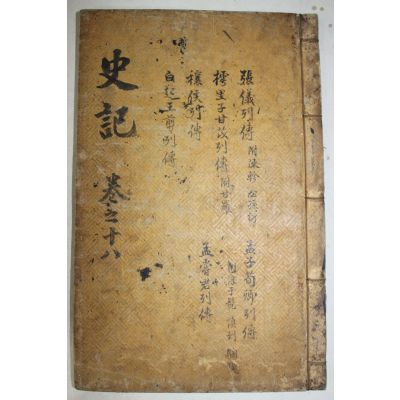 張儀列傳 附陳軫 公孫衍
樗里子甘茂列傳 附甘羅
穰侯列傳
白起王翦列傳
孟子荀卿列傳
附淳于髡 慎到
孟嘗君列傳
史記 卷之十八